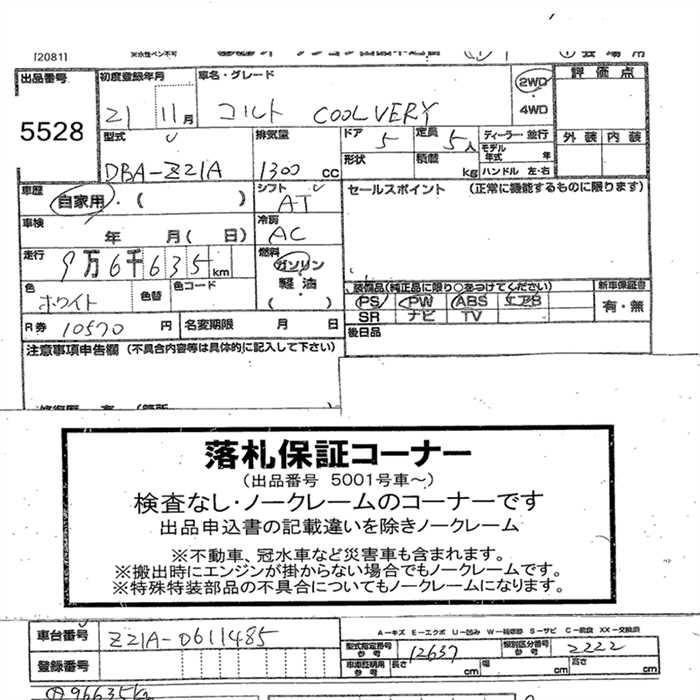 [2081]
出品番号 初度登録年月 車名・グレード 2WD 評価点
5528 21 11月 コルト COOLVERY ・4WD
型式 排気量 ドア 5 定員 5人 ディーラー・並行 外装 内装
DBA-Z21A 1300 CC 形状 積載 kg モデル年式 年 ハンドル 左・右
車歴 自家用・( ) シフト AT セールスポイント (正常に機能するものに限ります)
車検 年 月( 日) 冷房 AC
走行 9万6千635km 燃料 ガソリン・軽油・( )
色 ホワイト 色替 色コード 装備品(純正品に限り○をつけてください) 新車保証書
PS PW ABS エアB 有・無
R券 10570円 名変期限 月 日 SR ナビ TV
注意事項申告欄 (不具合内容等は具体的に記入して下さい) 後日品
落札保証コーナー
(出品番号 5001号車~)
検査なし・ノークレームのコーナーです
出品申込書の記載違いを除きノークレーム
※不動車、冠水車など災害車も含まれます。
※搬出時にエンジンが掛からない場合でもノークレームです。
※特殊特装部品の不具合についてもノークレームになります。
A-キズ E-エクボ U-凹み W-補修跡 S-サビ C-腐食 XX-交換済
車台番号 Z21A-0611485 型式指定番号 参考 12637 類別区分番号 参考 2222
登録番号 車庫証明用 参考 長さ cm 幅 cm 高さ cm
96635km